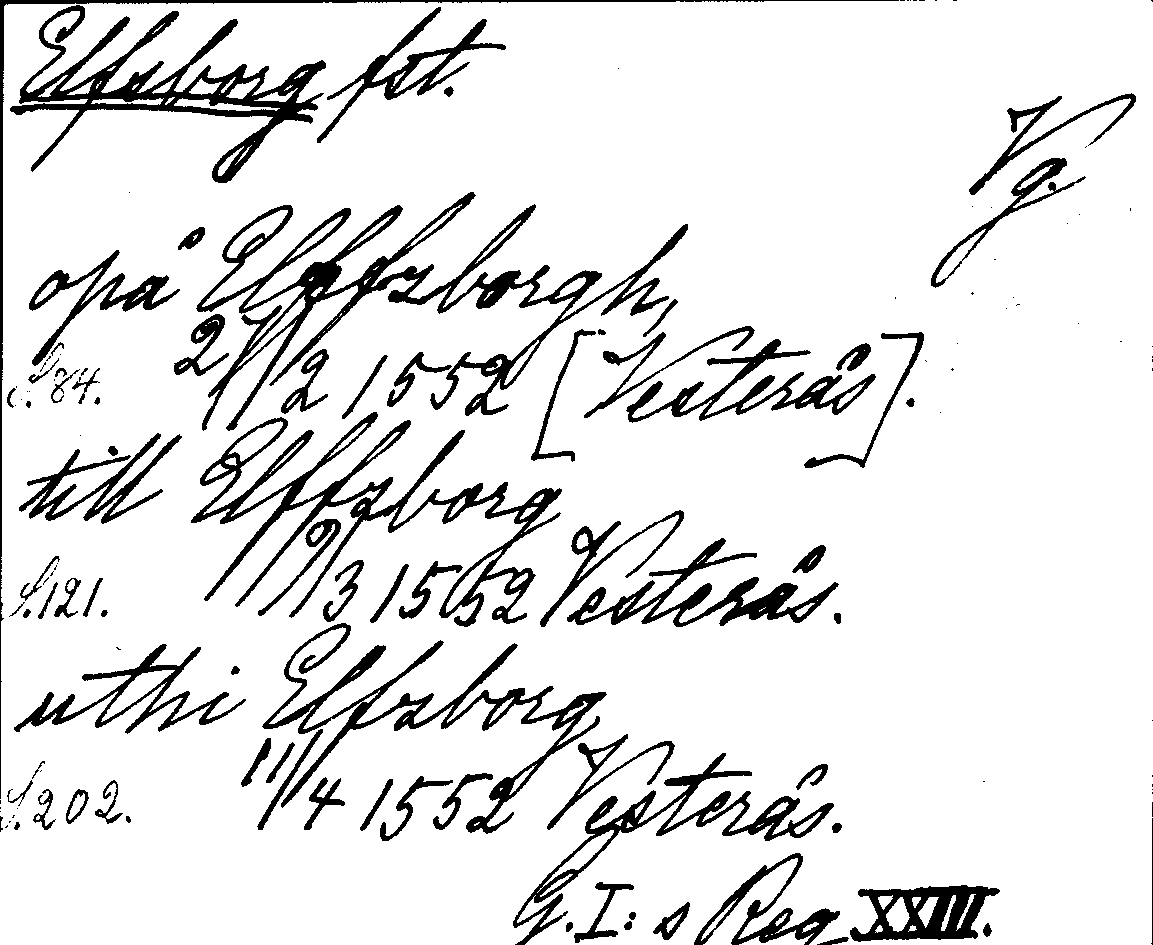 Elfsborg fst.
Vg.
opå Elffzborgh,
S. 84. 21/2 1552 [Vesterås].
till Elffzborg
S. 121. 19/3 1552 Vesterås.
uthi Elfzborg,
S. 202. 11/4 1552 Vesterås.
G. I: s Reg XXIII.